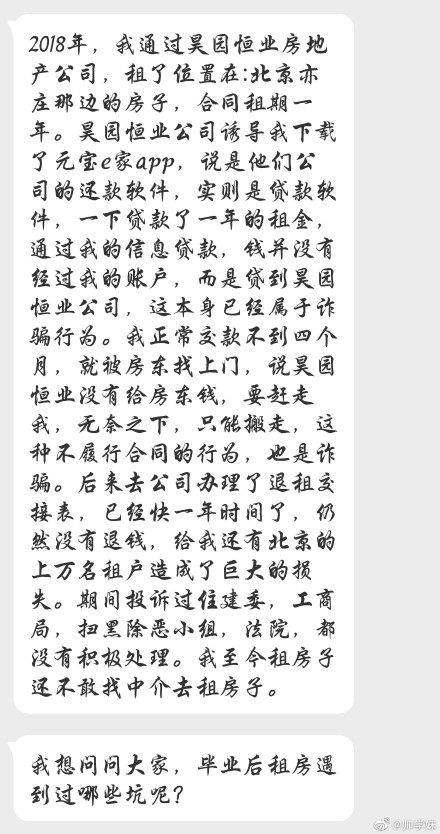 2018年，我通过昊园恒业房地
产公司，租了位置在:北京亦
庄那边的房子，合同租期一
年。昊园恒业公司诱导我下载
了元宝e家app，说是他们公
司的还款软件，实则是贷款软
件，一下贷款了一年的租金，
通过我的信息贷款，钱并没有
经过我的账户，而是贷到昊园
恒业公司，这本身已经属于诈
骗行为。我正常交款不到四个
月，就被房东找上门，说昊园
恒业没有给房东钱，要赶走
我，无奈之下，只能搬走，这
种不履行合同的行为，也是诈
骗。后来去公司办理了退租交
接表，已经快一年时间了，仍
然没有退钱，给我还有北京的
上万名租户造成了巨大的损
失。期间投诉过住建委，工商
局，扫黑除恶小组，法院，都
没有积极处理。我至今租房子
还不敢找中介去租房子。
我想问问大家，毕业后租房遇
到过哪些坑呢？
@帅学妹